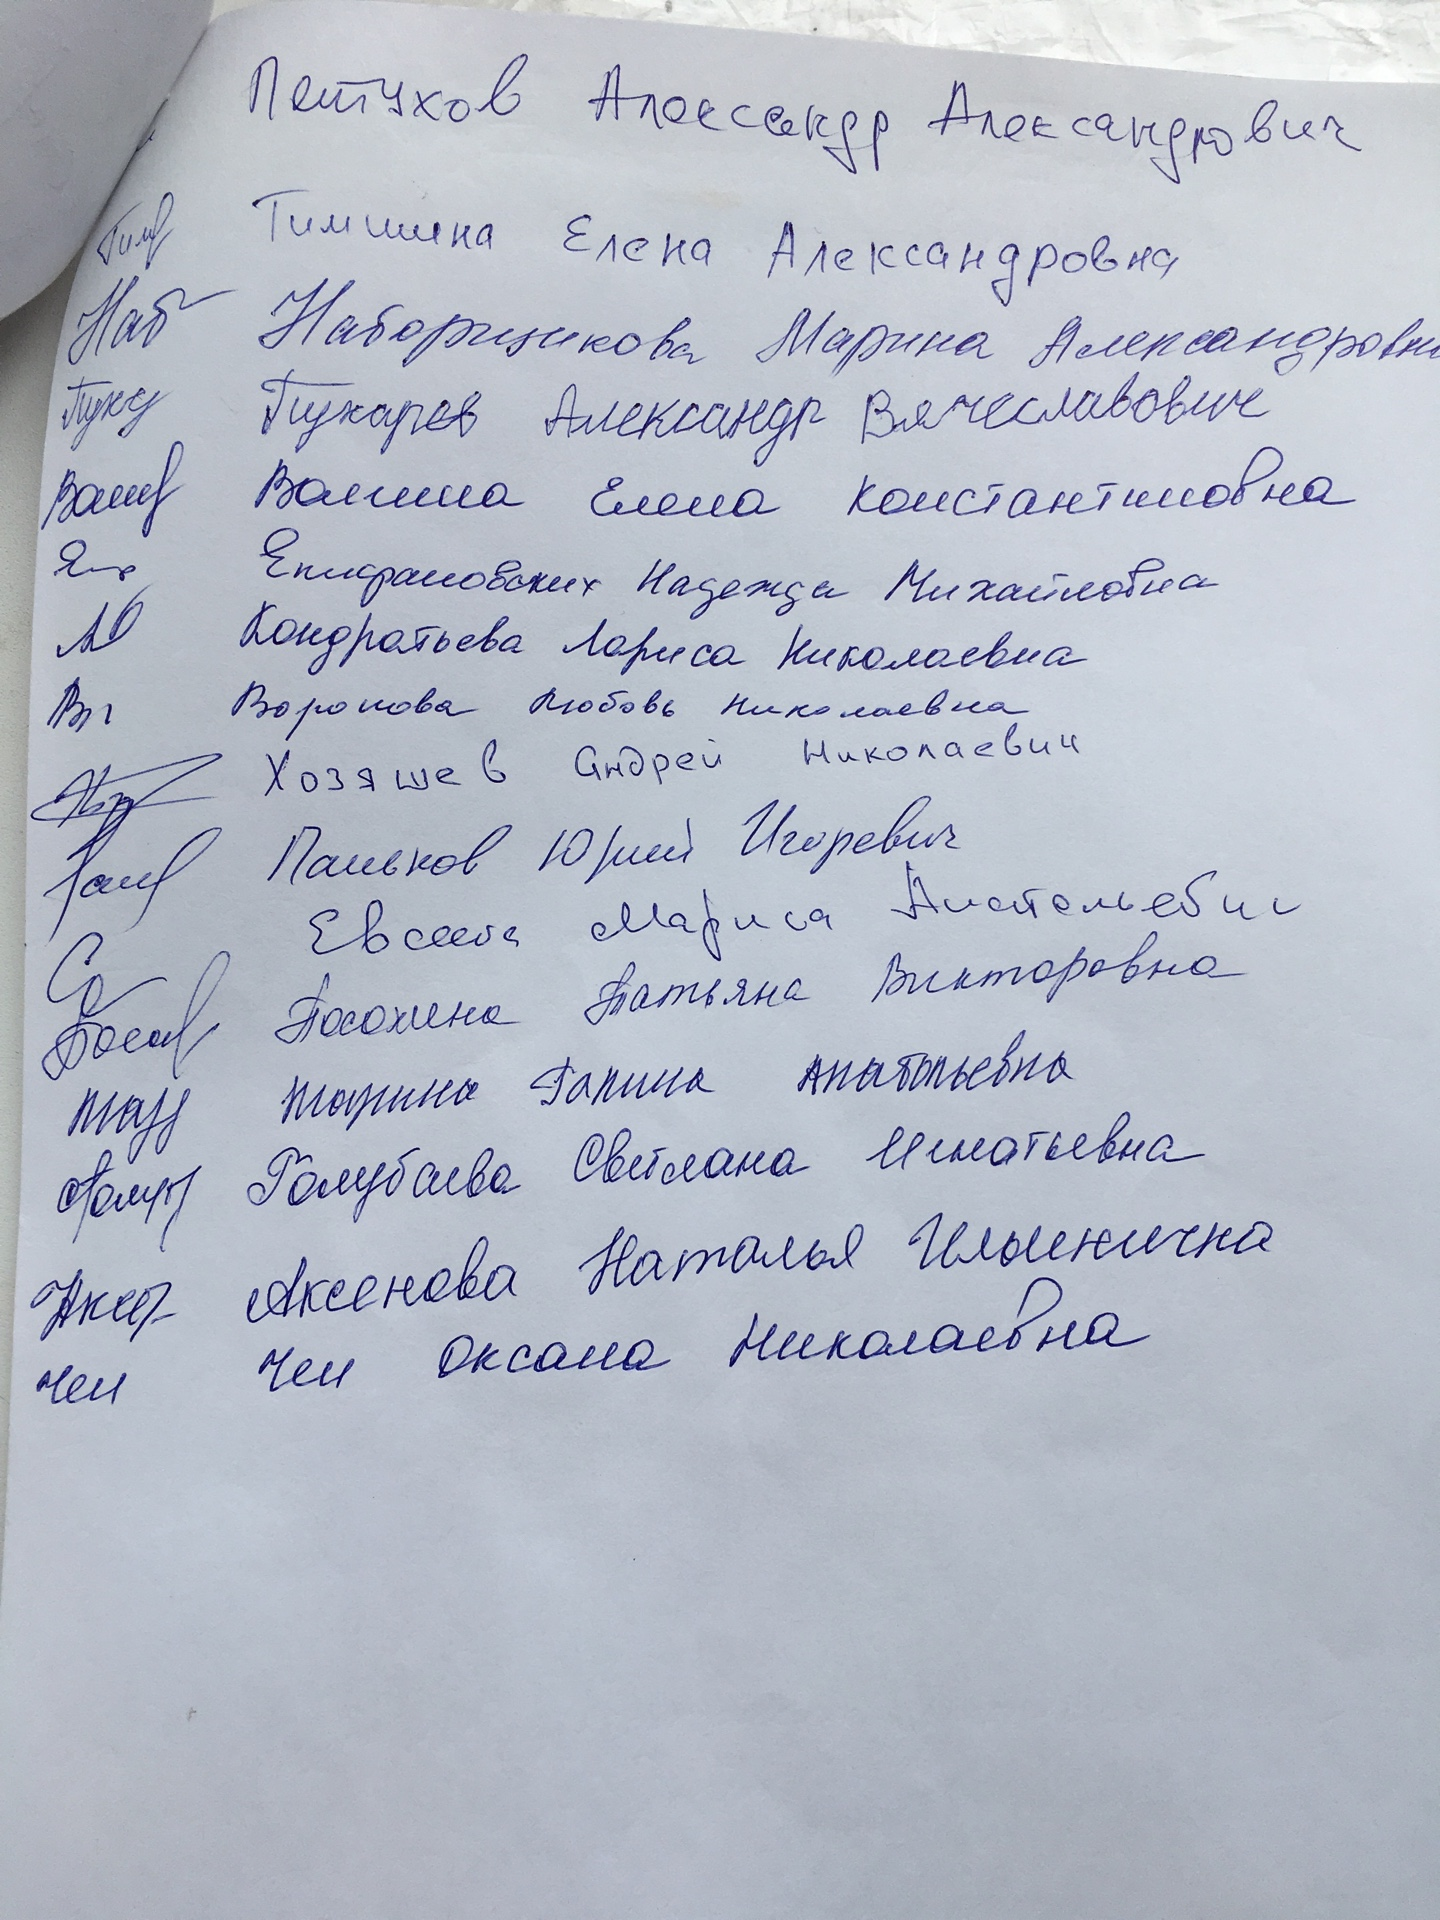 Петухов Александр Александрович
Тим Тимшина Елена Александровна
Наб Наборщикова Марина Александровна
Пухар Александр Вячеславович
Волг Елена Константиновна
Епифановских Надежда Михайловна
Кондратьева Лариса Николаевна
Воронова Любовь Николаевна
Хозяшев Андрей Николаевич
Паньков Юрий Игоревич
Евсеева Анатольевн
Посохина Татьяна Викторовна
Галина Анатольевна
Светлана Игнатьевна
Аксенова Наталья Ильинична
Чен Чен Оксана Николаевна